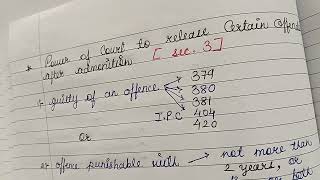 * Power of Court to release Certain Offen
after admonition [ sec. 3 ]
1) guilty of an offence → 379
380
381
I.P.C 404
420
or
2) offence punishable with → not more than
2 years, or
or both